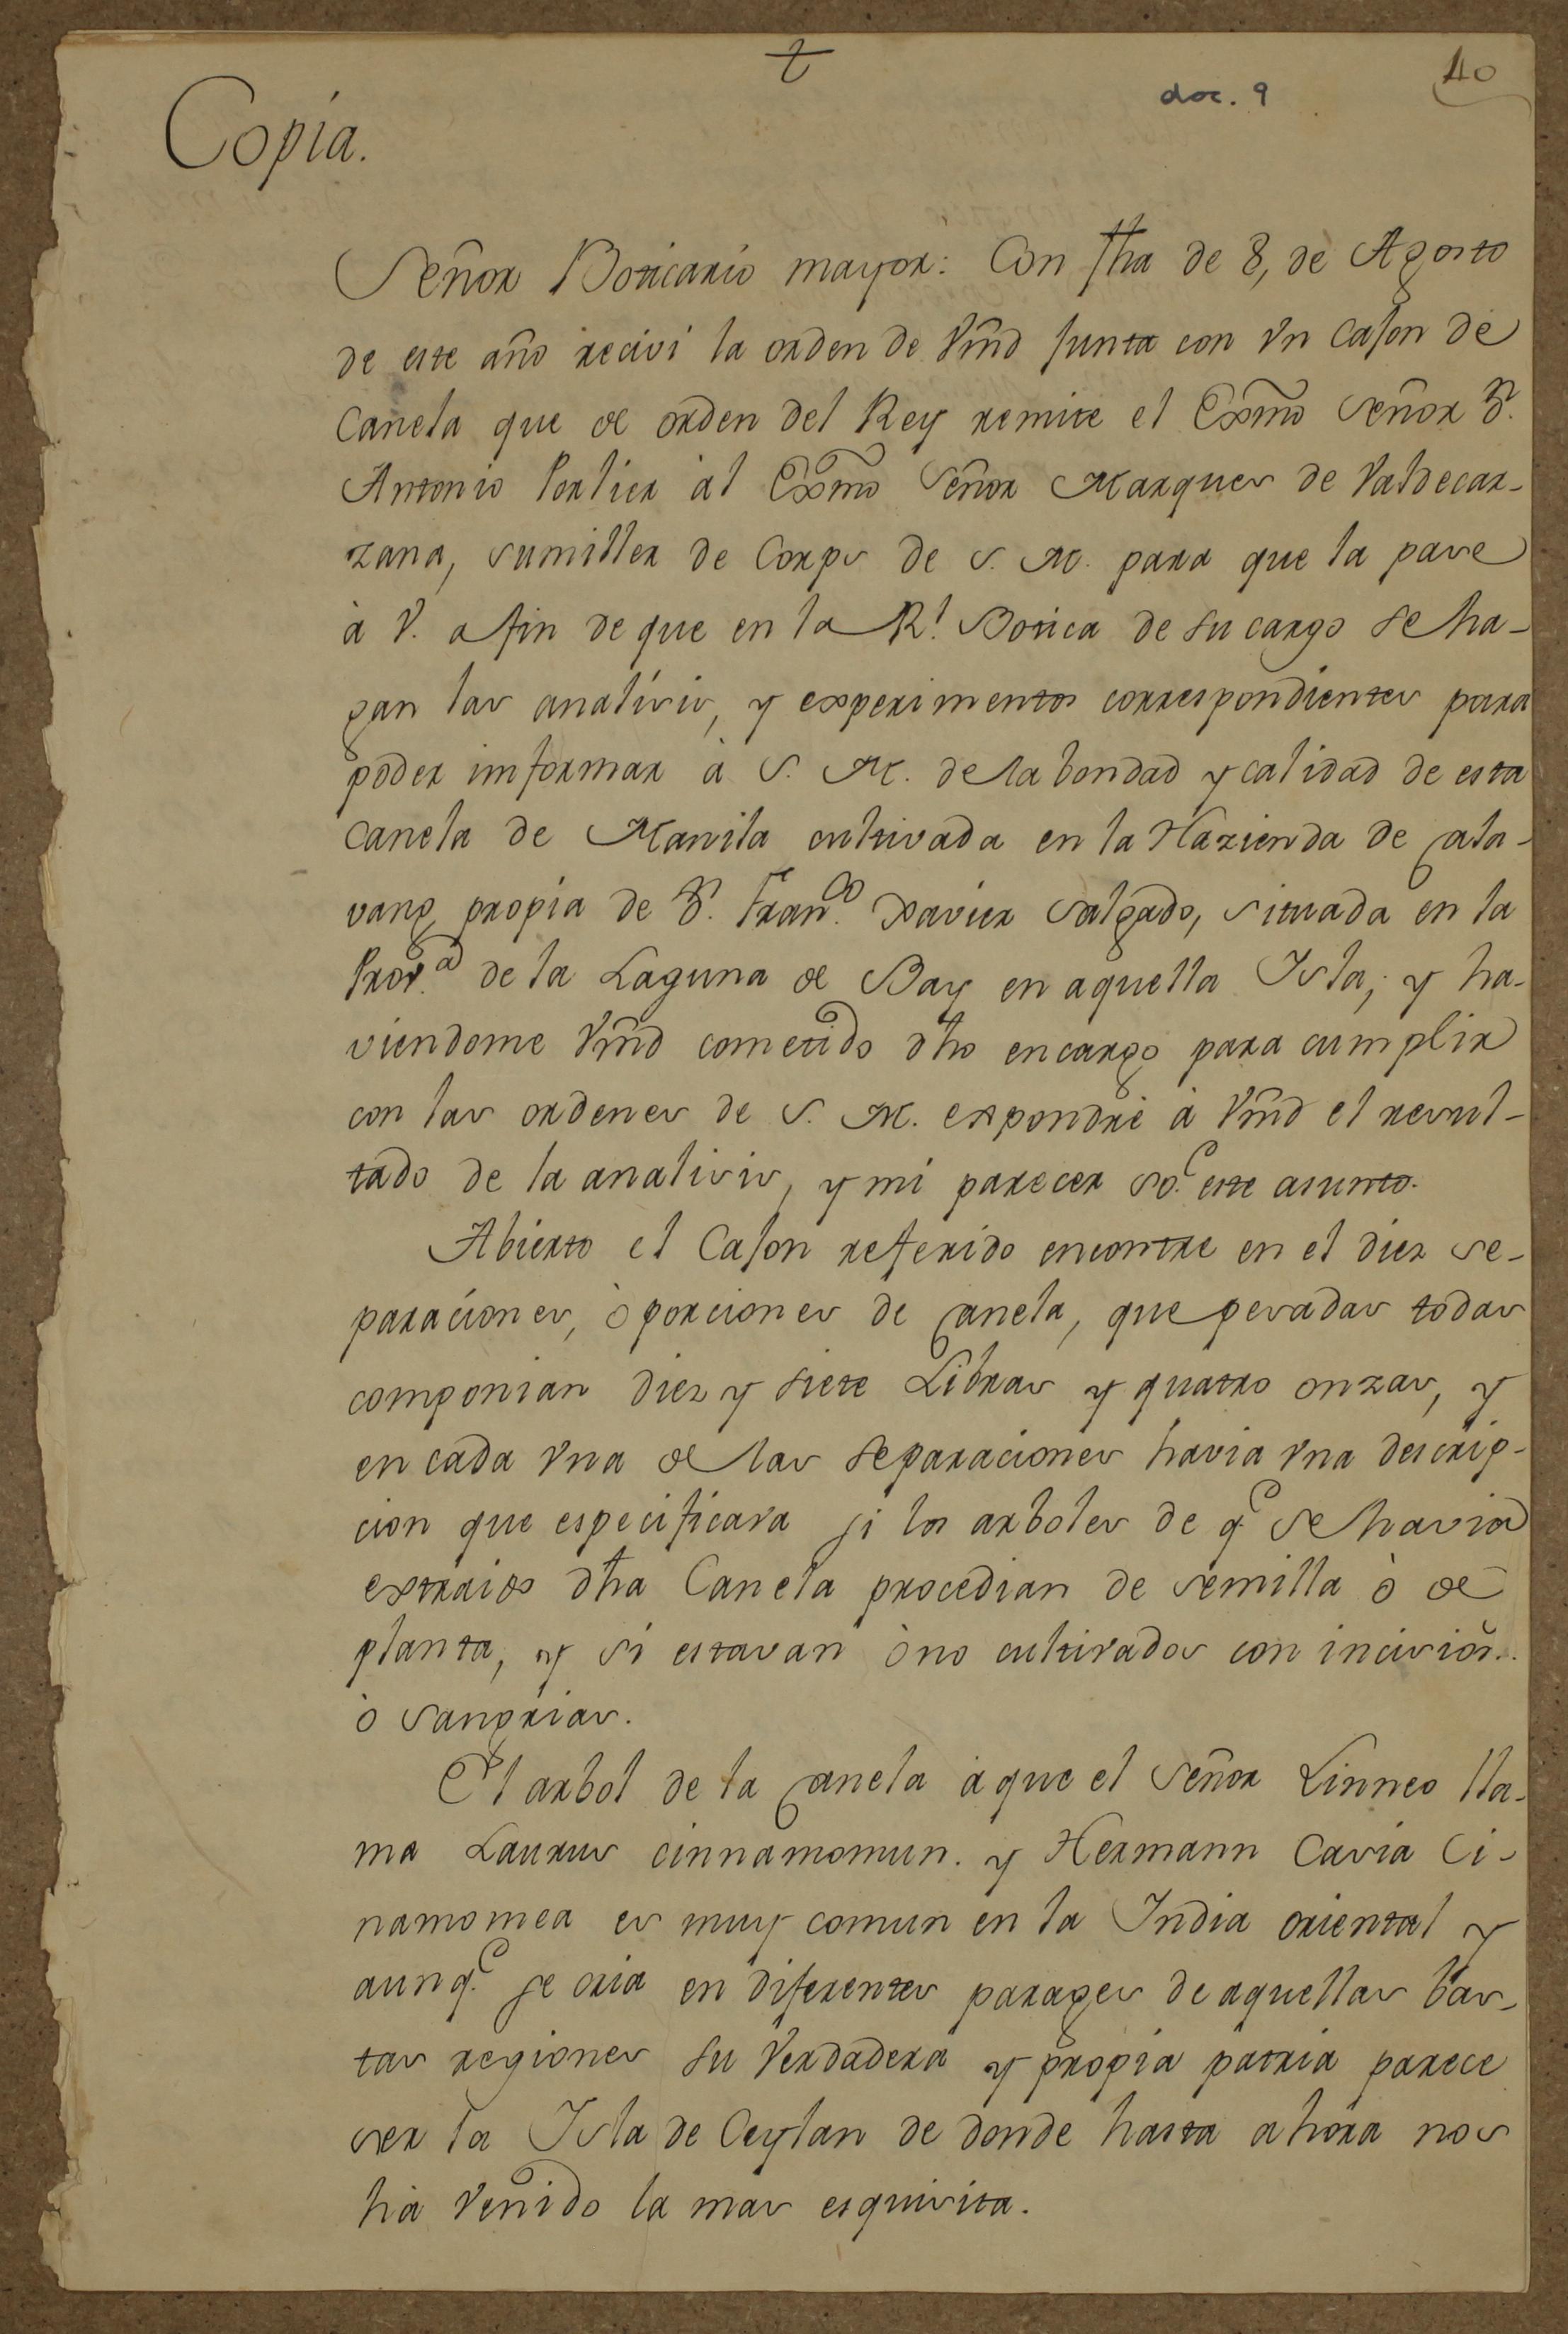 †
doc. 9
40
Copia.
Señor Boticario mayor: Con fha de 8, de Agosto
de este año recivi la orden de Vmd junta con Vn Cajon de
Canela que de orden del Rey remite el Exmo Señor Dn.
Antonio Porlier al Exmo Señor Marques de Valdecar-
zana, sumiller de Corps de S. M. para que la pase
à V. afin de que en la Rl. Botica de su cargo se ha-
gan las analisis, y experimentos correspondientes para
poder imformar à S. M. de la bondad y calidad de esta
Canela de Manila cultivada en la Hazienda de Cala-
vang propia de Dn. Franco. Xavier Salgado, situada en la
Prova. de la Laguna de Bay en aquella Isla; y ha-
viendome Vmd cometido dho encargo para cumplir
con las ordenes de S. M. expondrè à Vmd el resul-
tado de la analisis, y mi parecer soe. este asunto.
Abierto el Cajon referido encontre en el diez se-
paraciones, ò porciones de Canela, que pesadas todas
componian diez y siete Libras y quatro onzas, y
en cada Vna de las separaciones havia Vna descrip-
cion que especificava si los arboles de qe. se havia
extraido dha Canela procedian de semilla ò de
planta, y si estavan ò no cultivados con incision..
ò sangrias.
El arbol de la Canela à que el Señor Linneo lla-
ma Laurus cinnamomun. y Hermann Casia Ci-
namomea es muy comun en la India oriental y
aunqe. se cria en diferentes parages de aquellas bas-
tas regiones su Verdadera y propia patria parece
ser la Isla de Ceylan de donde hasta ahora nos
hà Venido la mas esquisita.